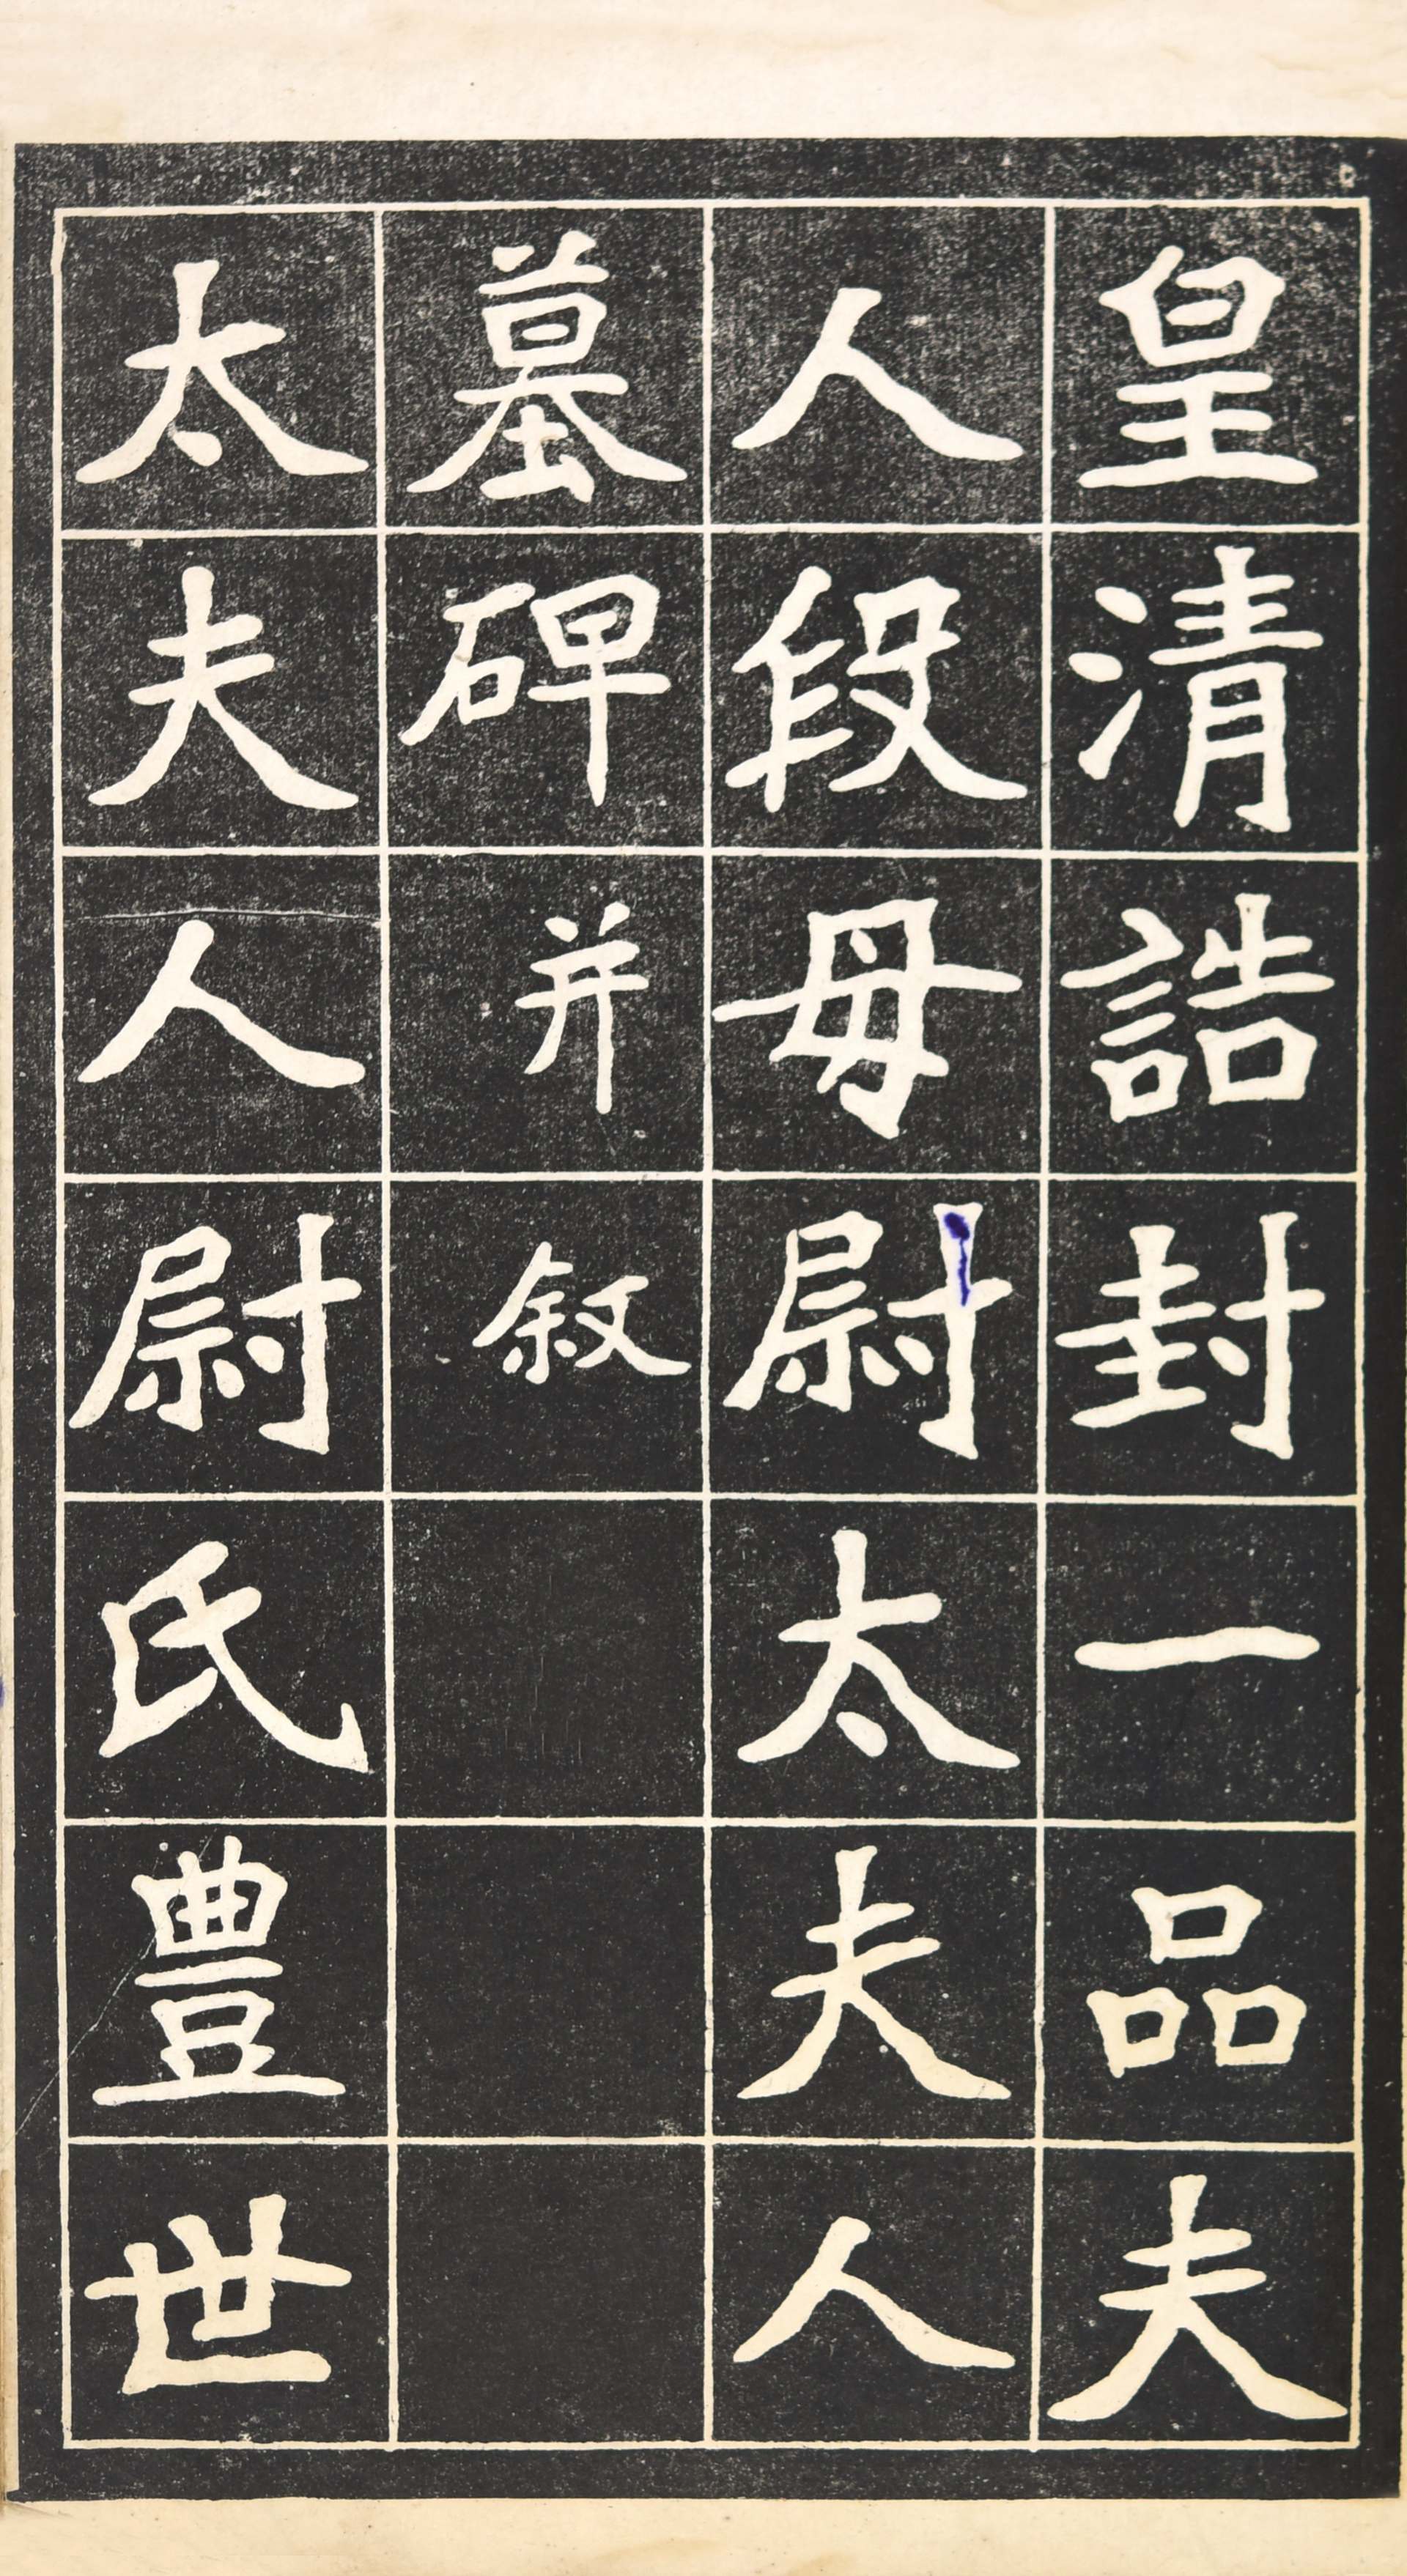 皇清誥封一品夫
人段母尉太夫人
墓碑并敘
太夫人尉氏豊世